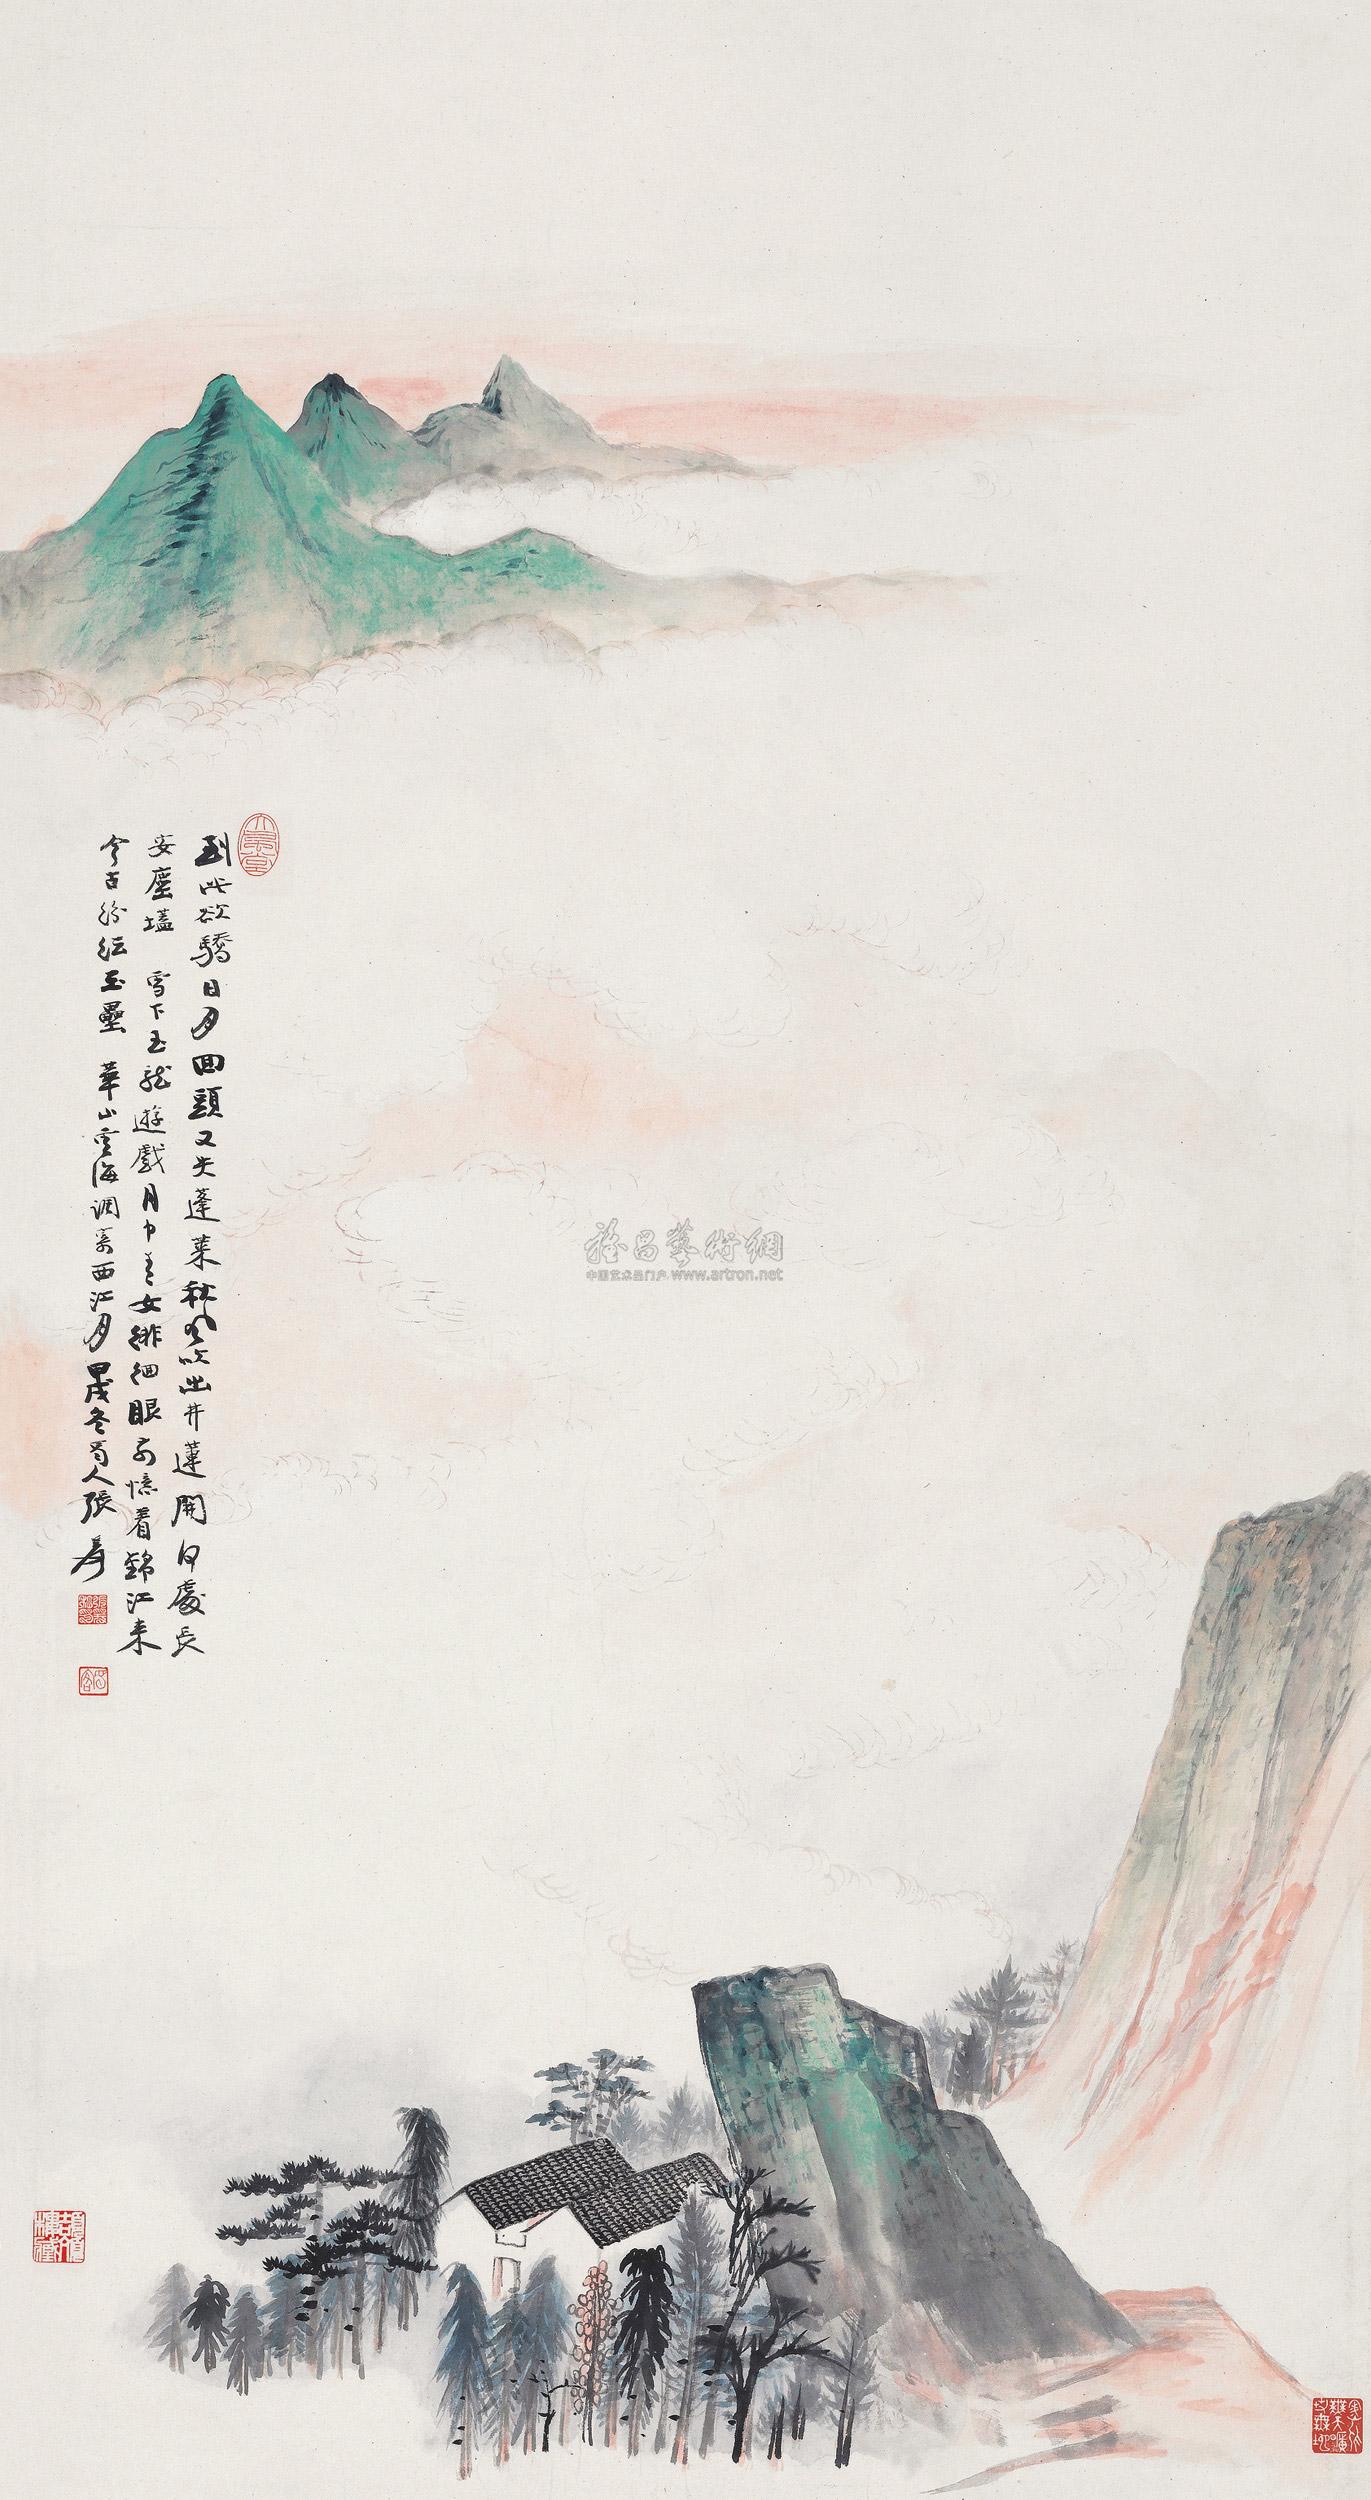 到此欲驕日月回頭又失蓬萊秋風吹出井蓮開何處長
安塵壒 雪下玉龍遊戲月中美女緋徊眼前憶看錦江來
今古紛紜玉壘 華山雲海調寄西江月甲戌冬蜀人張
爰
雅昌藝術網
中国艺术品门户 www.artron.net